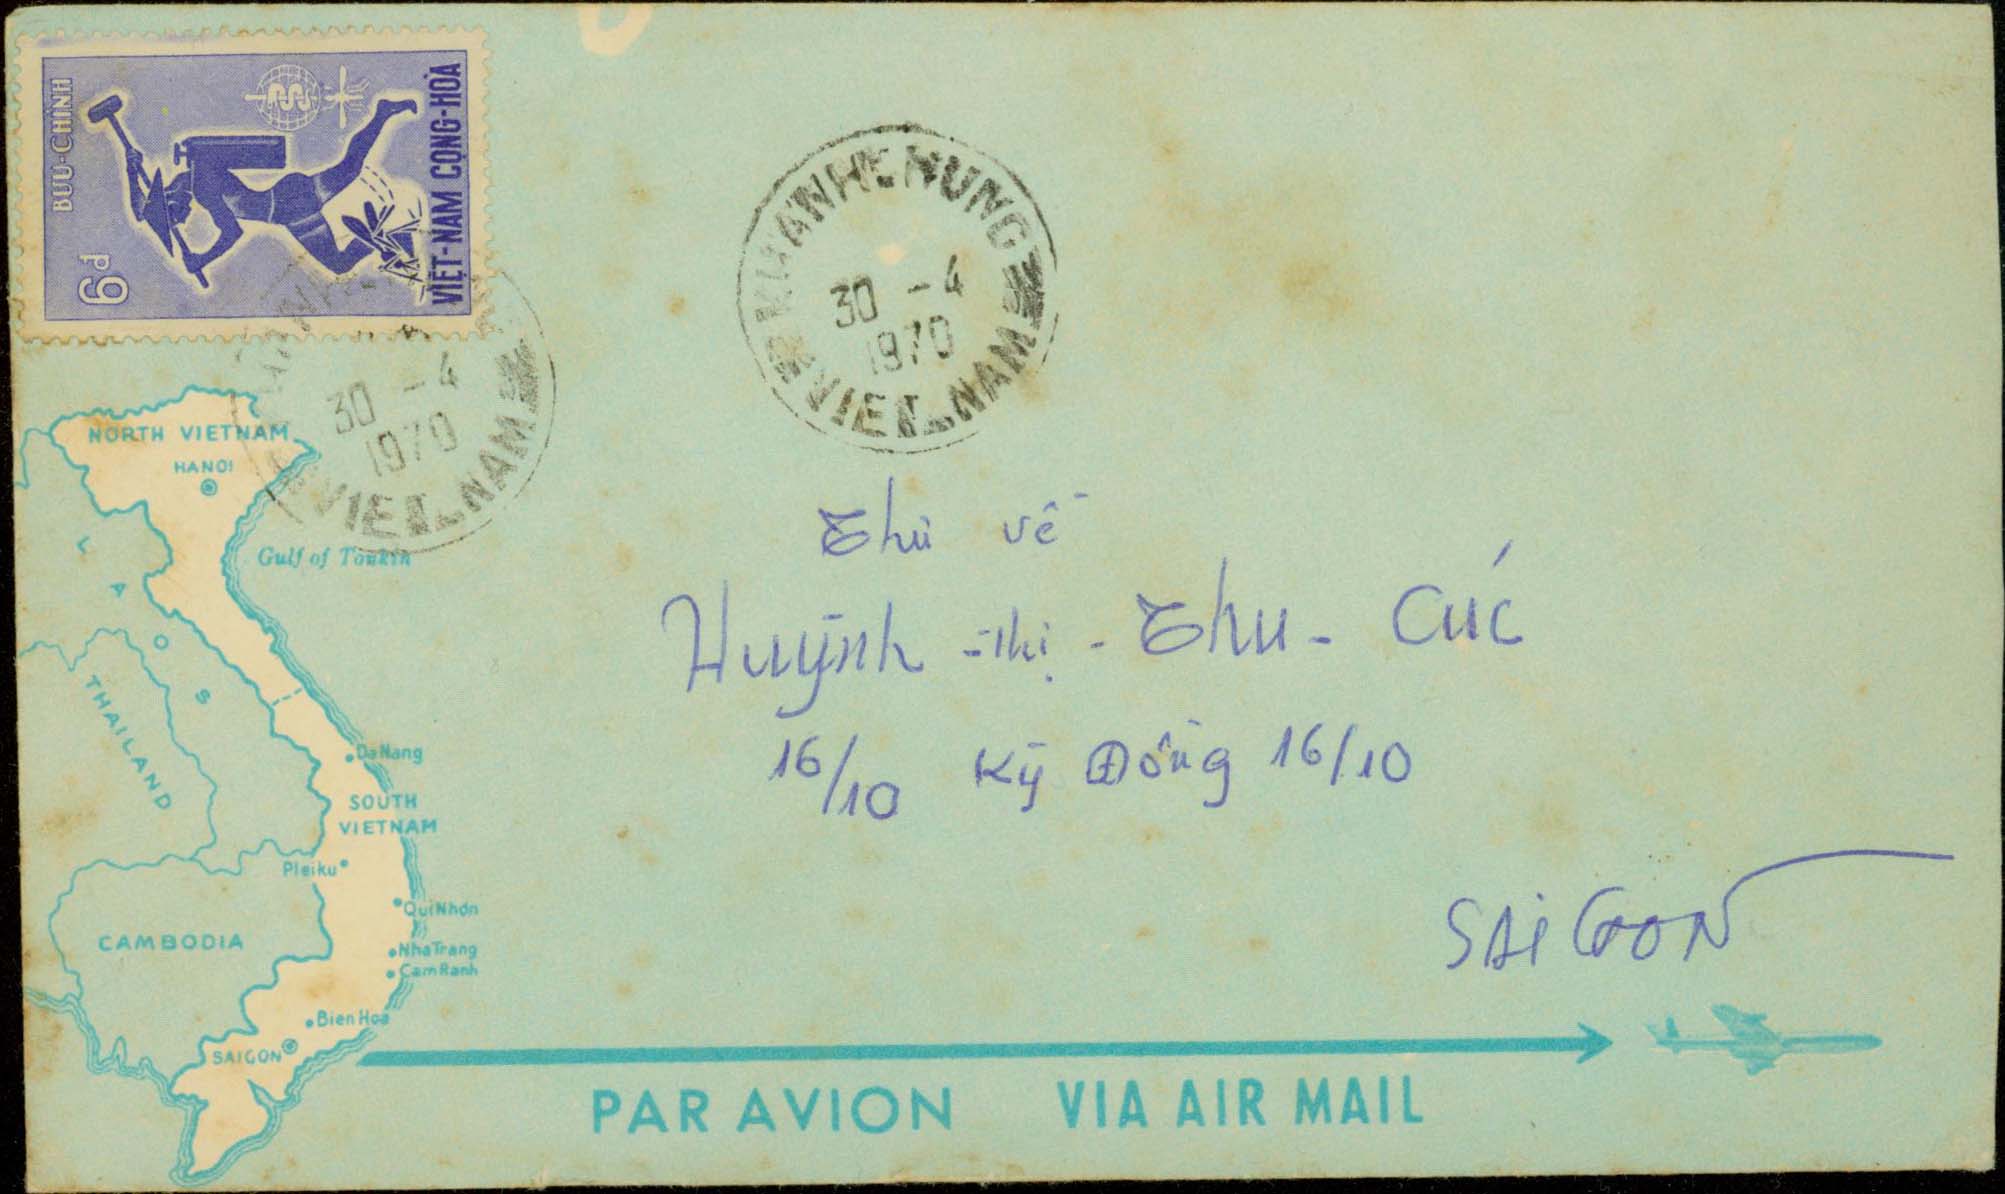 BƯU-CHÍNH
VIỆT-NAM CỘNG-HÒA
6đ
KHANH HUNG
30 - 4
1970
VIET-NAM
30 - 4
1970
VIET-NAM
Thư về
Huỳnh - Thị - Thu - Cúc
16/10 Kỳ Đồng 16/10
SAiGON
NORTH VIETNAM
HANOI
Gulf of Tonkin
LAOS
THAILAND
DaNang
SOUTH
VIETNAM
Pleiku
QuiNhon
CAMBODIA
NhaTrang
CamRanh
Bien Hoa
SAIGON
PAR AVION VIA AIR MAIL